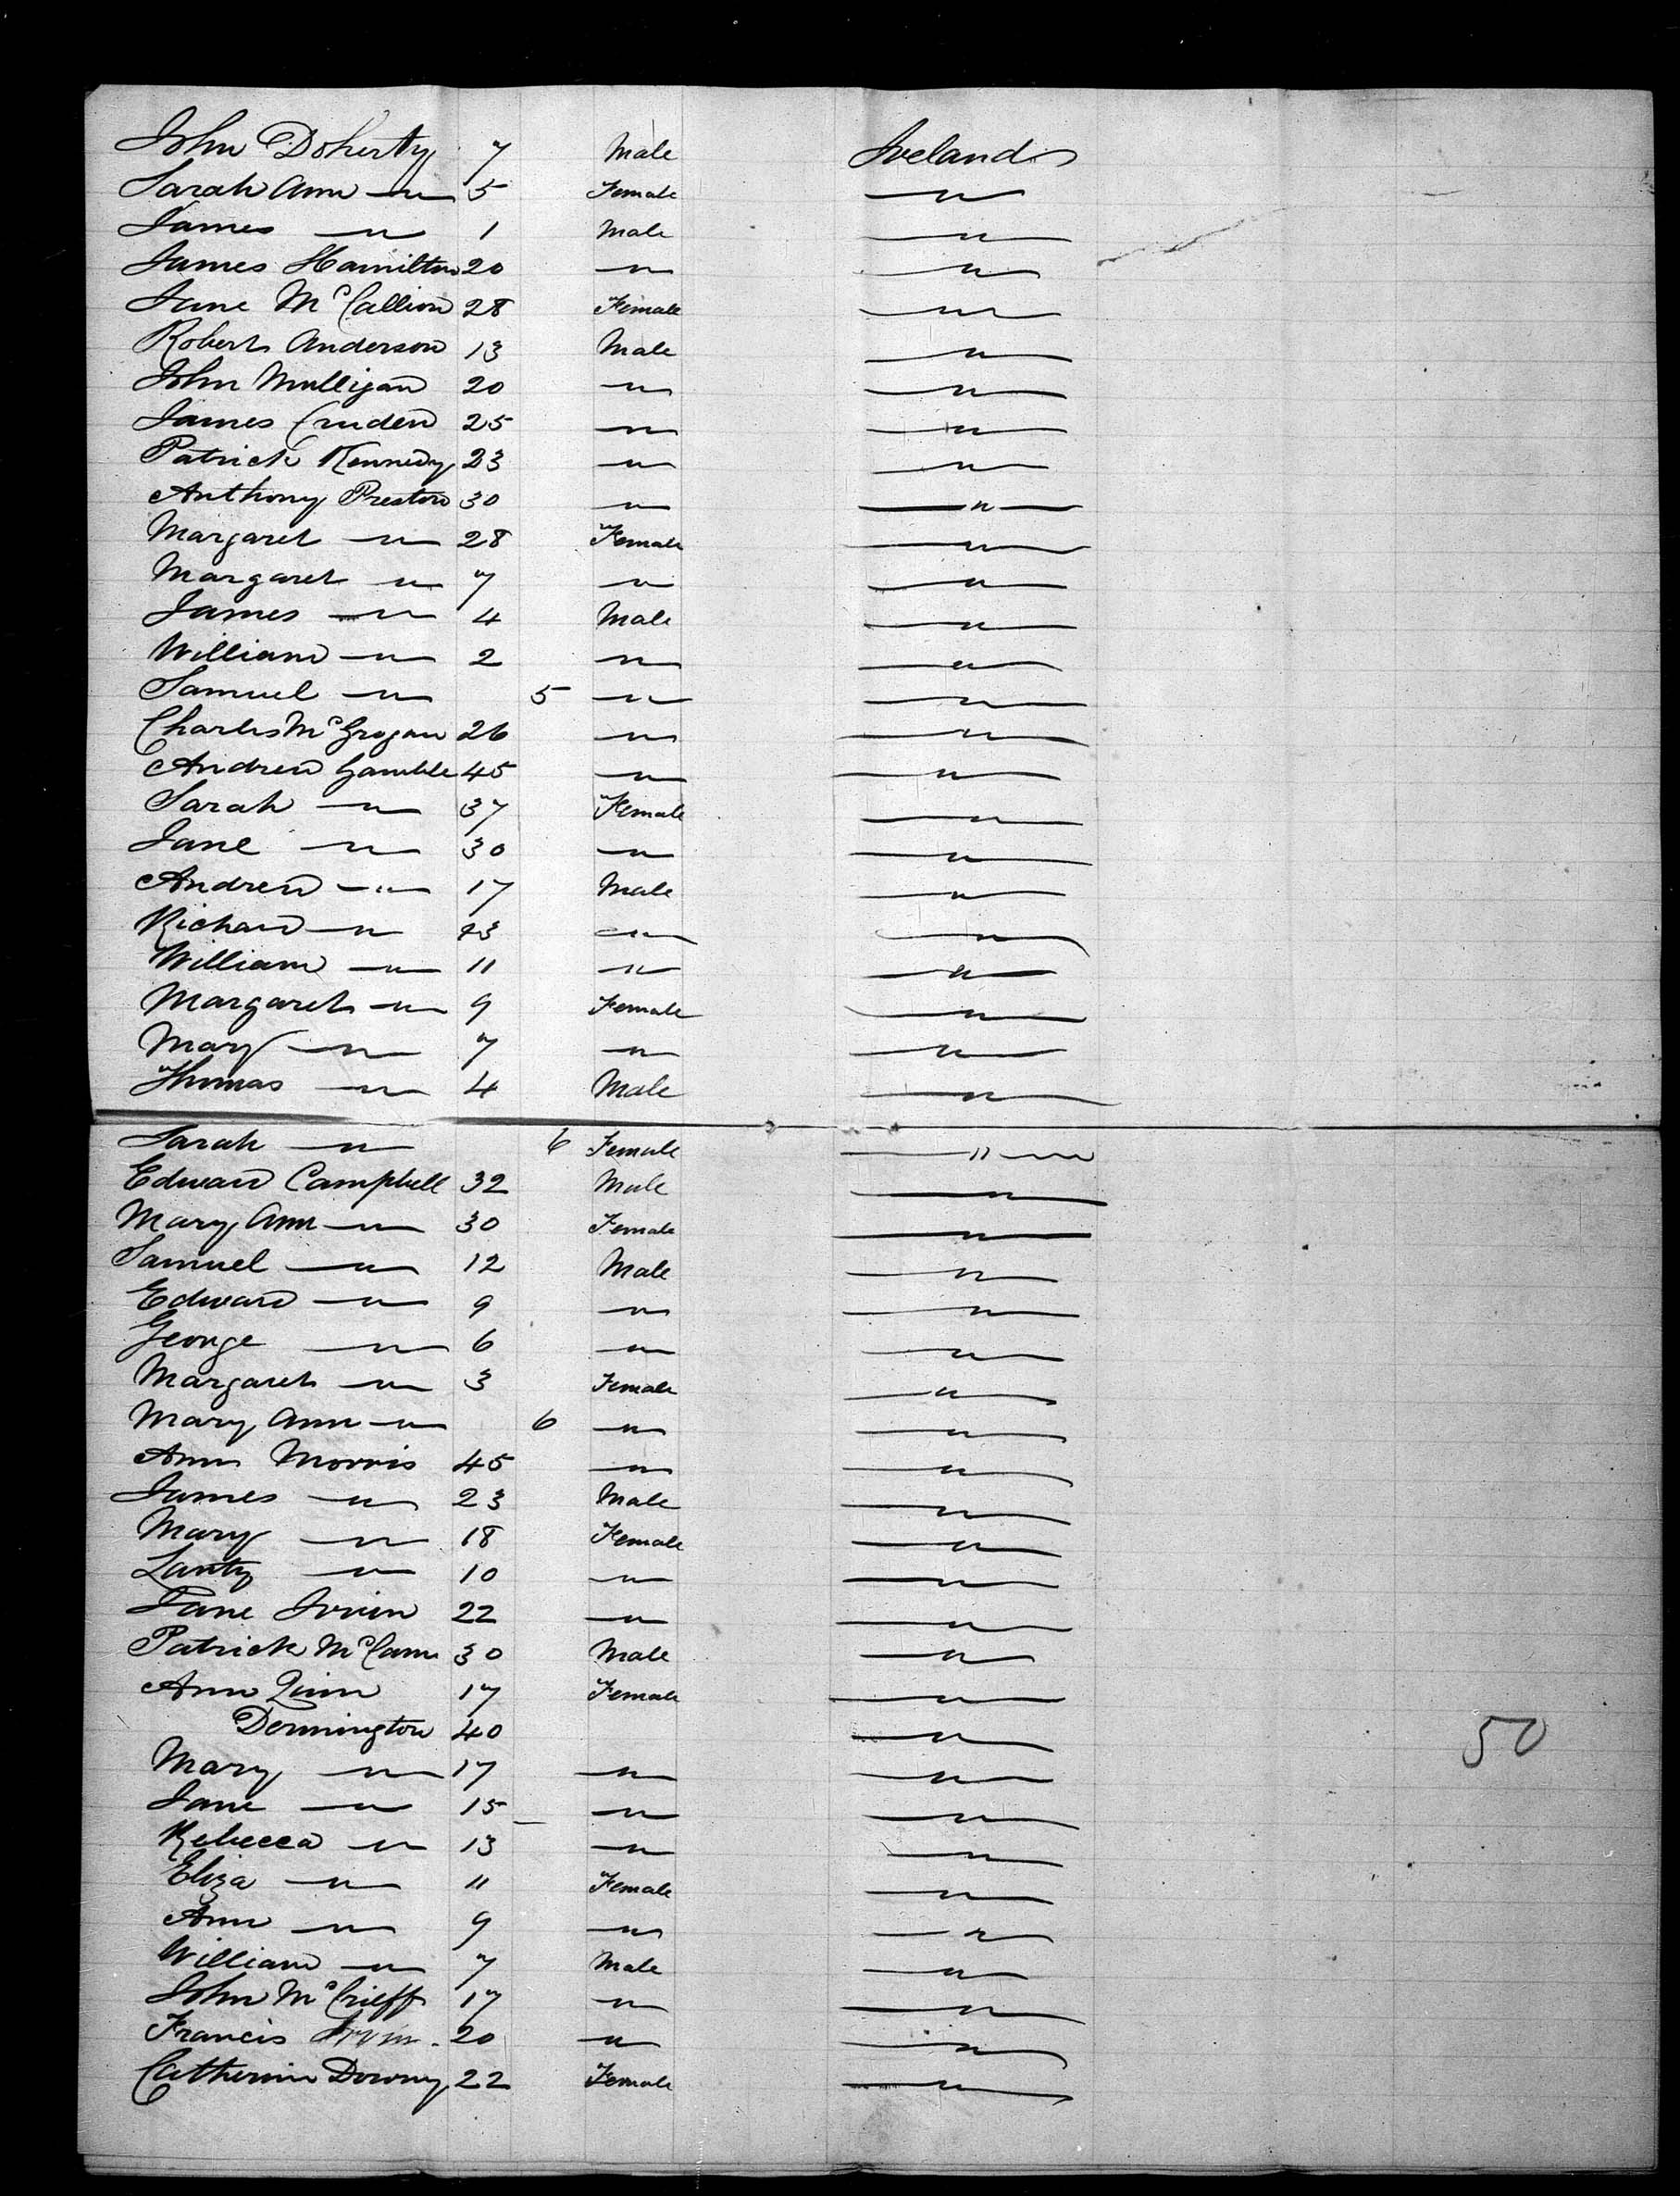 John Doherty 7 Male Ireland
Sarah Ann —"— 5 Female —"—
James —"— 1 Male —"—
James Hamilton 20 —"— —"—
Jane McCallion 28 Female —"—
Robert Anderson 13 Male —"—
John Mulligan 20 —"— —"—
James Cruden 25 —"— —"—
Patrick Kennedy 23 —"— —"—
Anthony Preston 30 —"— —"—
Margaret —"— 28 Female —"—
Margaret —"— 7 —"— —"—
James —"— 4 Male —"—
William —"— 2 —"— —"—
Samuel —"— 5 —"— —"—
Charles McGrogan 26 —"— —"—
Andrew Gamble 45 —"— —"—
Sarah —"— 37 Female —"—
Jane —"— 30 —"— —"—
Andrew —"— 17 Male —"—
Richard —"— —"— —"—
William —"— 11 —"— —"—
Margaret —"— 9 Female —"—
Mary —"— 7 —"— —"—
Thomas —"— 4 Male —"—
Sarah —"— 6 Female —"—
Edward Campbell 32 Male —"—
Mary Ann —"— 30 Female —"—
Samuel —"— 12 Male —"—
Edward —"— 9 —"— —"—
George —"— 6 —"— —"—
Margaret —"— 3 Female —"—
Mary Ann —"— 6 —"— —"—
Ann Morris 45 —"— —"—
James —"— 23 Male —"—
Mary —"— 18 Female —"—
Lanty —"— 10 —"— —"—
Jane Irvin 22 —"— —"—
Patrick McCann 30 Male —"—
Ann Quinn 17 Female —"—
Dennington 40 —"— 50
Mary —"— 17 —"— —"—
Jane —"— 15 —"— —"—
Rebecca —"— 13 —"— —"—
Eliza —"— 11 Female —"—
Ann —"— 9 —"— —"—
William —"— 7 Male —"—
John McCrieff 17 —"— —"—
Francis Irvin 20 —"— —"—
Catherine Downy 22 Female —"—